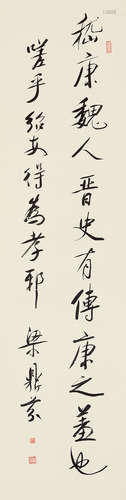 嵇康魏人晋史有傳康之羞也
嗟乎紹安得為孝耶 梁鼎芬